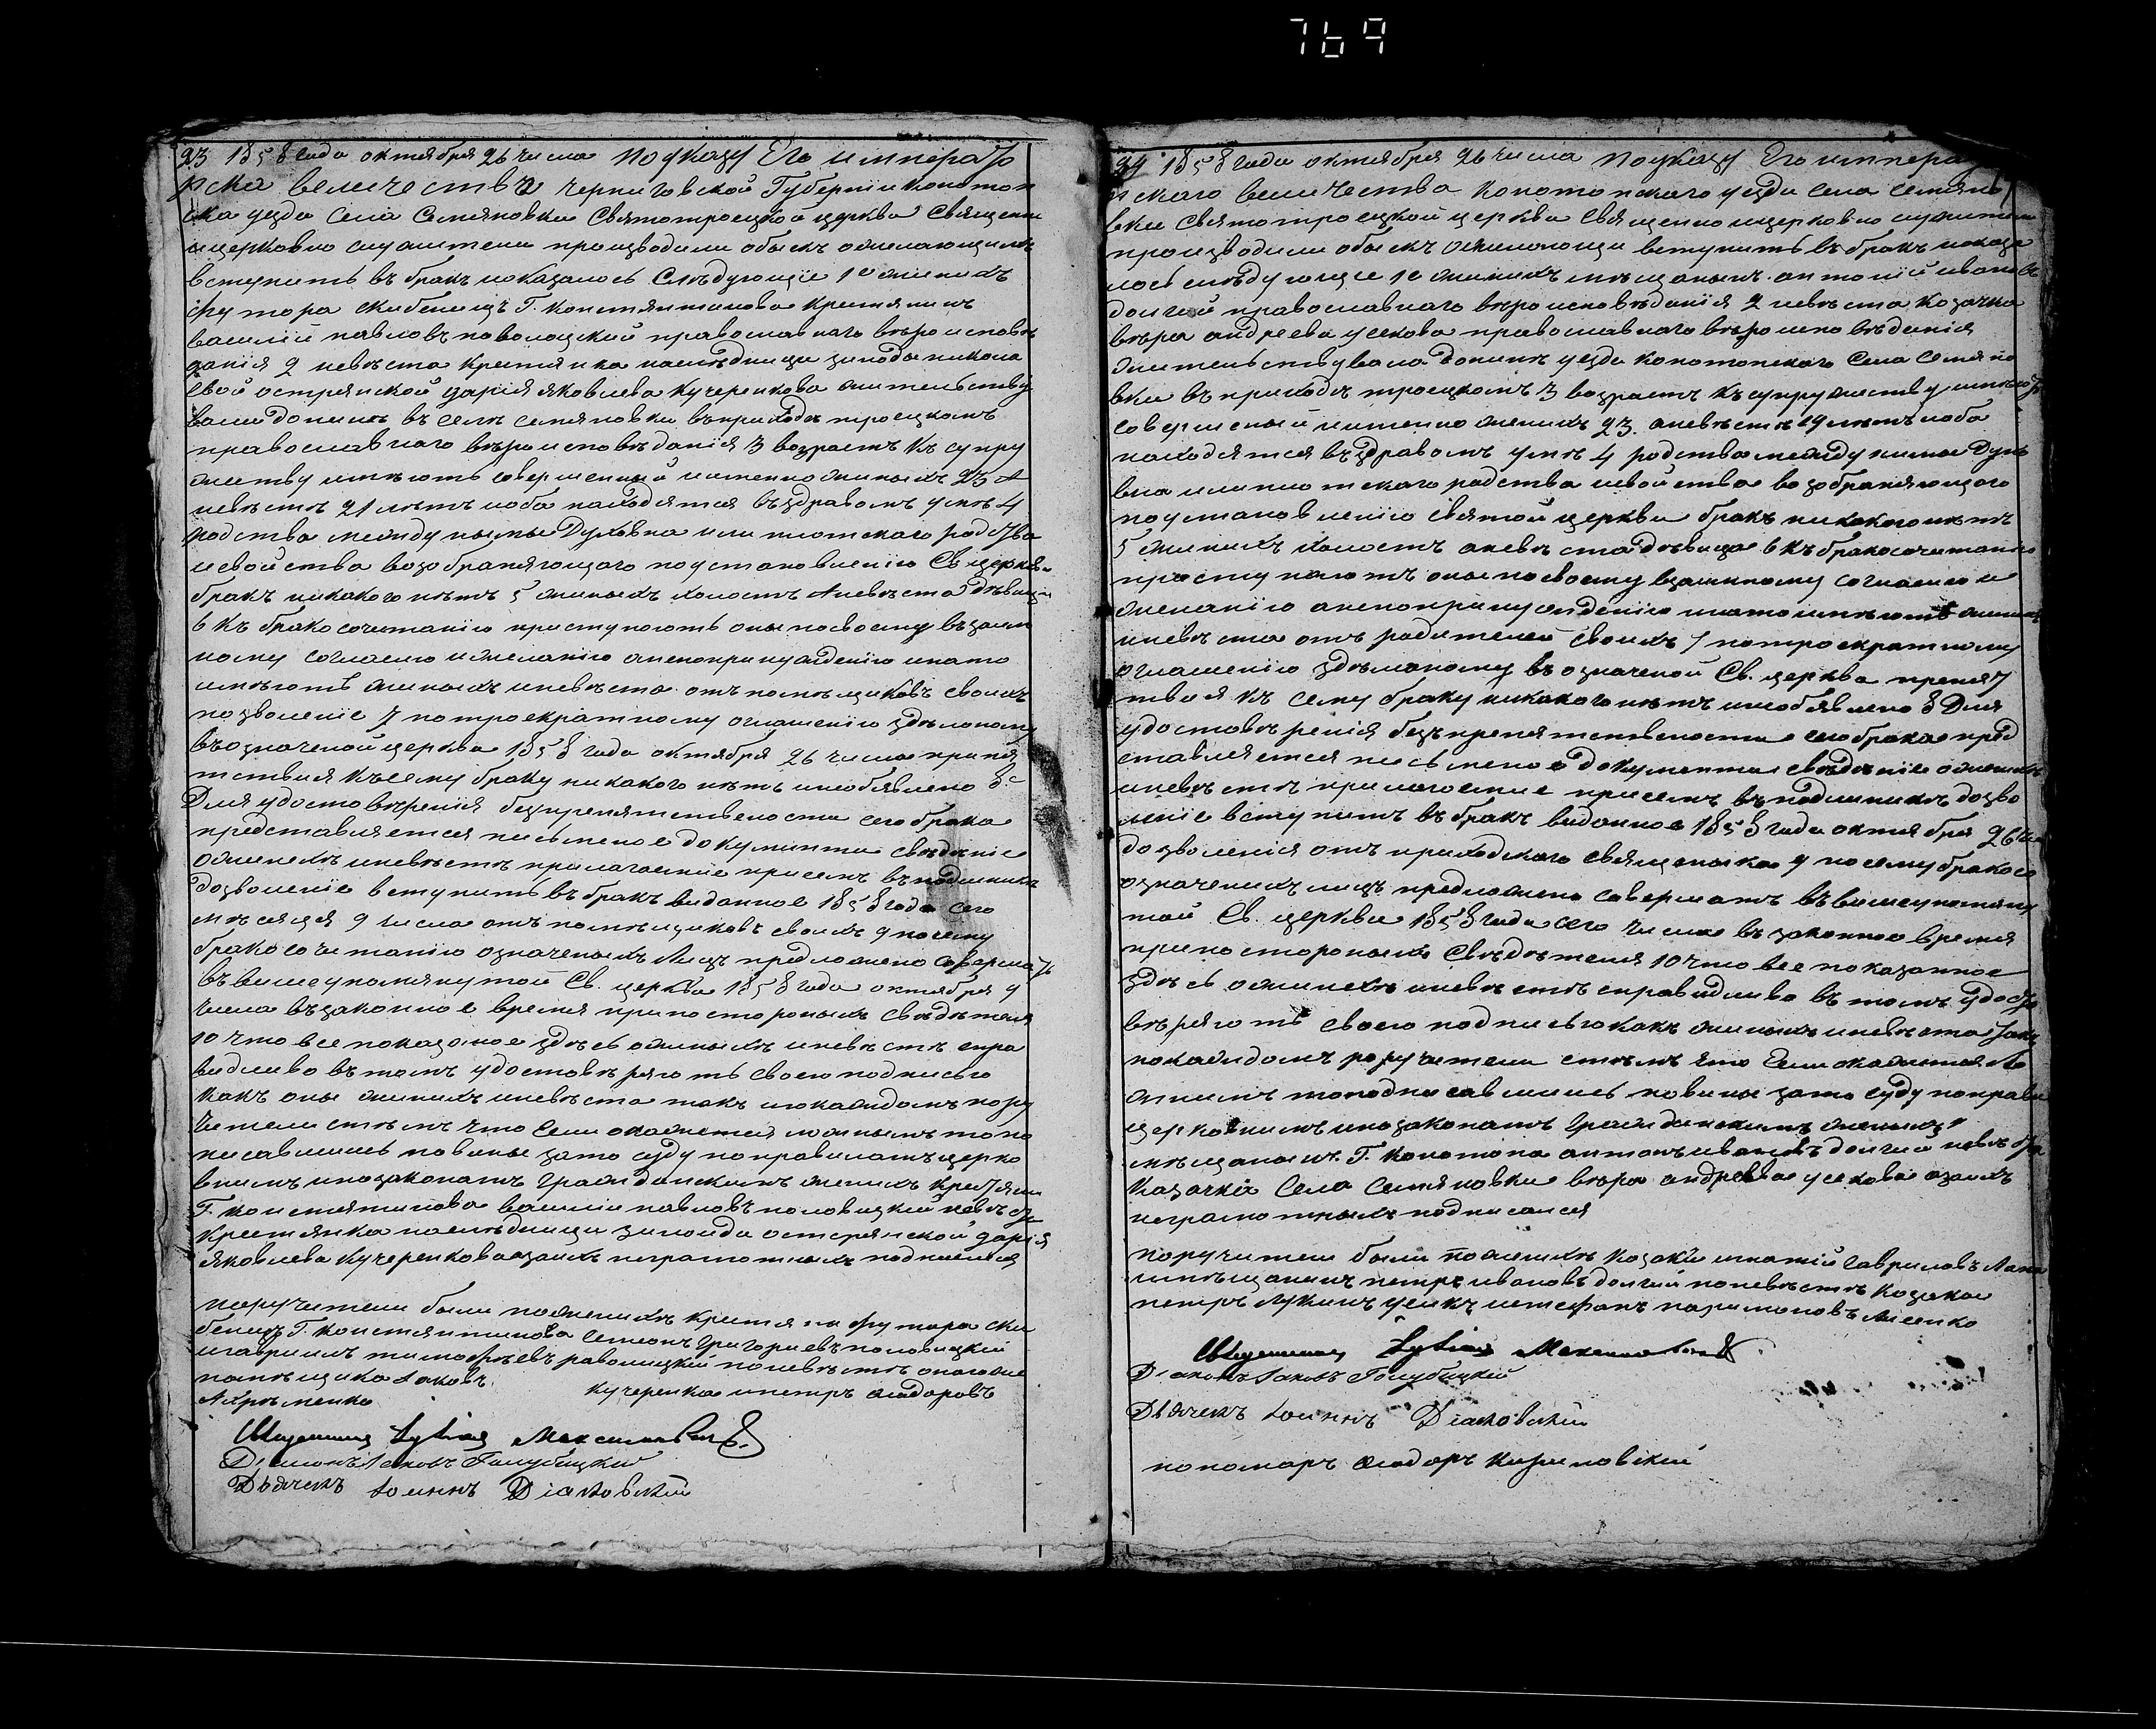 769
23 1858 года октября 26 числа по указу Его императо
рска величества черниговской Губернии Конотоп
ска уезда села Семяновки Святотроецкой церква Священно
ицерковно служители производили обыскъ ожелающимъ
вступить въ бракъ иоказалось Слѣдующіе 1е женихъ
футора скибенцъ Г. константинова крестянинъ
василій павловъ половецкой православнаго вѣроисповѣ
данія 2 невѣста крестянка наслѣдници
остряиской дарія яковлева Кучеренкова жительству
вали донинѣ въ селѣ семяновки въ приходѣ троецкомъ
православнаго вѣроисповѣданія 3 возрастъ къ супру
жеству имѣютъ совершеный именно женихъ 23 а
невѣсте 21 лѣтъ иоба находятся въ здравомъ умѣ 4
родства между ными Духовна или плотскаго родства
исвойства возобраняющаго постановленію Св церкви
бракъ никакого нѣтъ 5 женихъ холостъ Аневѣста дѣвица
6 къ бракосочитанію приступаютъ оны посвоему взаим
ному согласию ижеланію анепопринуждению инато
имѣютъ женихъ иневѣста отъ помѣщиковъ своихъ
позволеніе 7 потроекратному оглашенію здѣланому
въозначеной церква 1858 года октября 26 числа препя
тствия къ сему браку никакого нѣтъ инеобявлено 8.
Для удостовѣрения безпрепятствености сего брака
представляется письменое документи свѣдѣніе
оженихѣ иневѣсте прилагаемие присемъ въподлинникѣ
дозволеніе вступить въ бракъ виданное 1858 года сего
мѣсяця 9 числа отъ помѣщиковъ своихъ 9 посему
бракосочитанию означеныхъ лицъ предложено совершать
въвишеупомянутой Св. церква 1858 года октября 9
числа въ законное время при постороныхъ свѣдѣтеля
10 что все показаное здѣсь оженихѣ иневѣсте спра
ведливо въ томъ удостовѣряютъ своею подписью
какъ оны женихъ иневѣста такъ и покаждомъ пору
чители стѣмъ что если окажется ложнымъ то по
писавшиесь повинны зато суду поправиламъ церко
внимъ ипозаконамъ гражданскимъ женихъ крестяни
Г. константинова василій павловъ половицкій невѣста
крестянка наслѣдници остряиской дарія
яковлева Кучеренкова азаихъ неграмотныхъ подписался
поручители были поженихѣ крестяне футора ски
бенцъ Г. константинова семіонъ Григориевъ половицкій
игавриилъ тимофѣевъ половицкій поневѣстѣ
помѣщика Іаковъ Кучеренко ипетръ Феодоровъ
Священникъ Максимовичъ
Діаконъ Іаковъ Голубицкій
Дьячекъ Іоаннъ Діаковскій
24 1858 года октября 26 числа по указу Его импера
рскаго величества Конотопскаго уезда села семяно
вки святотроецкой церква священно ицерковно служители
производили обыскъ ожелающи вступить въ бракъ иоказа
лось слѣдующие 1е женихъ мѣщанинъ антоній ивановъ
долгій православнаго вѣроисповѣданія 2 невѣста козачка
вѣра андреева усикова православнаго вѣроисповѣдания
жительствувала донинѣ уезда конотопскаго села семяно
вки въ приходѣ троецкомъ 3 возрастъ къ супружеству имѣютъ
совершеный именно женихъ 23. аневѣсте 19 лѣтъ иоба
находятся въ здравомъ умѣ 4 родства между ними Духо
вна или плотскаго родства исвойства возобраняющаго
постановлению святой церкви бракъ никакого нѣтъ
5 женихъ холостъ аневѣста дѣвица 6 къ бракосочитанию
приступаютъ оные посвоему взаимному согласию и
желанію анепопринуждению инато имѣютъ женихъ
иневѣста отъ родителей своихъ 7 потроекратному
оглашенію здѣланому въ означеной Св. церква препят
твия къ сему браку никакого нѣтъ инеобявлено 8 Для
удостовѣрения безъпрепятствености сего брака пред
ставляется письмено е документи свѣдѣние оженихѣ
иневѣстѣ прилагаемие присемъ въподлиникѣ дозво
ление вступить въ бракъ виданное 1858 года октября 26 чи
дозволения отъ приходскаго священика 9 посему бракосо
означеныхъ лицъ предложено совершать въвишеупомяну
той Св. церкви 1858 года сего числа въ законное время
припостороныхъ свѣдѣтеля 10 что все показанное
здѣсь оженихѣ иневѣсте справидливо въ томъ удосто
вѣряютъ своею подписью какъ женихъ иневѣста такъ
покаждомъ поручители стѣмъ что если окажется ло
жнимъ топодписавшиесь повины зато суду поправи
церковнимъ ипозаконамъ гражданскимъ женихъ
мѣщанинъ Г. конотопа антонъ ивановъ долгій невѣста
козачка села семяновки вѣра андреева усикова азаихъ
неграмотныхъ подписался
поручители были поженихѣ козаки игнатій гавриловъ
имѣщанинъ петръ ивановъ долгий поневѣстѣ козаки
петръ лукинъ усикъ истефанъ паримоновъ лисенко
Священникъ Максимовичъ
Діаконъ Іаковъ Голубицкій
Дьячекъ Іоаннъ Діаковскій
пономарь Феодоръ Кириловскій